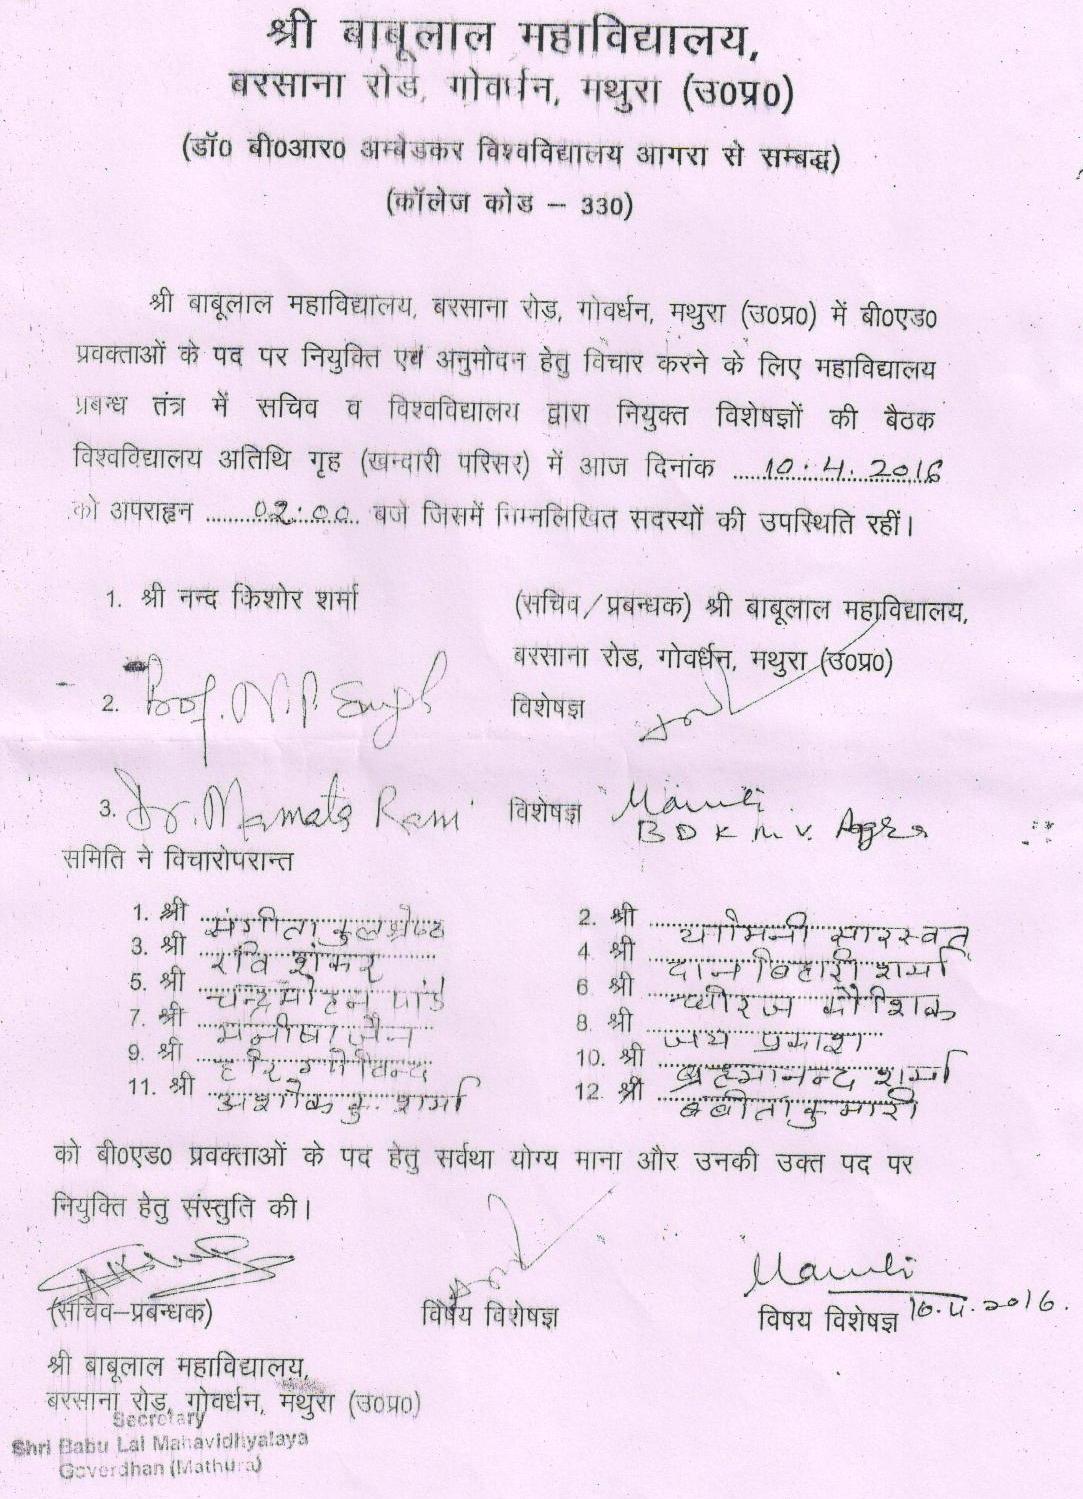 श्री बाबूलाल महाविद्यालय,
बरसाना रोड, गोवर्धन, मथुरा (उ0प्र0)
(डॉ0 बी0आर0 अम्बेडकर विश्वविद्यालय आगरा से सम्बद्ध)
(कॉलेज कोड – 330)
श्री बाबूलाल महाविद्यालय, बरसाना रोड, गोवर्धन, मथुरा (उ0प्र0) में बी0एड0
प्रवक्ताओं के पद पर नियुक्ति एवं अनुमोदन हेतु विचार करने के लिए महाविद्यालय
प्रबन्ध तंत्र में सचिव व विश्वविद्यालय द्वारा नियुक्त विशेषज्ञों की बैठक
विश्वविद्यालय अतिथि गृह (खन्दारी परिसर) में आज दिनांक 10.4.2016
को अपराहन 02:00 बजे जिसमें निम्नलिखित सदस्यों की उपस्थिति रहीं।
1. श्री नन्द किशोर शर्मा (सचिव/प्रबन्धक) श्री बाबूलाल महाविद्यालय,
बरसाना रोड, गोवर्धन, मथुरा (उ0प्र0)
2. Prof. N.P. Singh विशेषज्ञ
3. Dr. Mamata Rani विशेषज्ञ
B D K M V. Agra
समिति ने विचारोपरान्त
1. श्री संगीता कुलश्रेष्ठ 2. श्री सारस्वत
3. श्री रवि शंकर 4. श्री दान बिहारी शर्मा
5. श्री चन्द्रमोहन पांडे 6 श्री धीरज कौशिक
7. श्री मनीषा जैन 8. श्री जय प्रकाश
9. श्री हरि गोविन्द 10. श्री ब्रह्मानन्द शर्मा
11. श्री अशोक कु. शर्मा 12. श्री बबीता कुमारी
को बी0एड0 प्रवक्ताओं के पद हेतु सर्वथा योग्य माना और उनकी उक्त पद पर
नियुक्ति हेतु संस्तुति की।
(सचिव–प्रबन्धक) विषय विशेषज्ञ विषय विशेषज्ञ 10.4.2016.
श्री बाबूलाल महाविद्यालय,
बरसाना रोड, गोवर्धन, मथुरा (उ0प्र0)
Secretary
Shri Babu Lal Mahavidhyalaya
Goverdhan (Mathura)